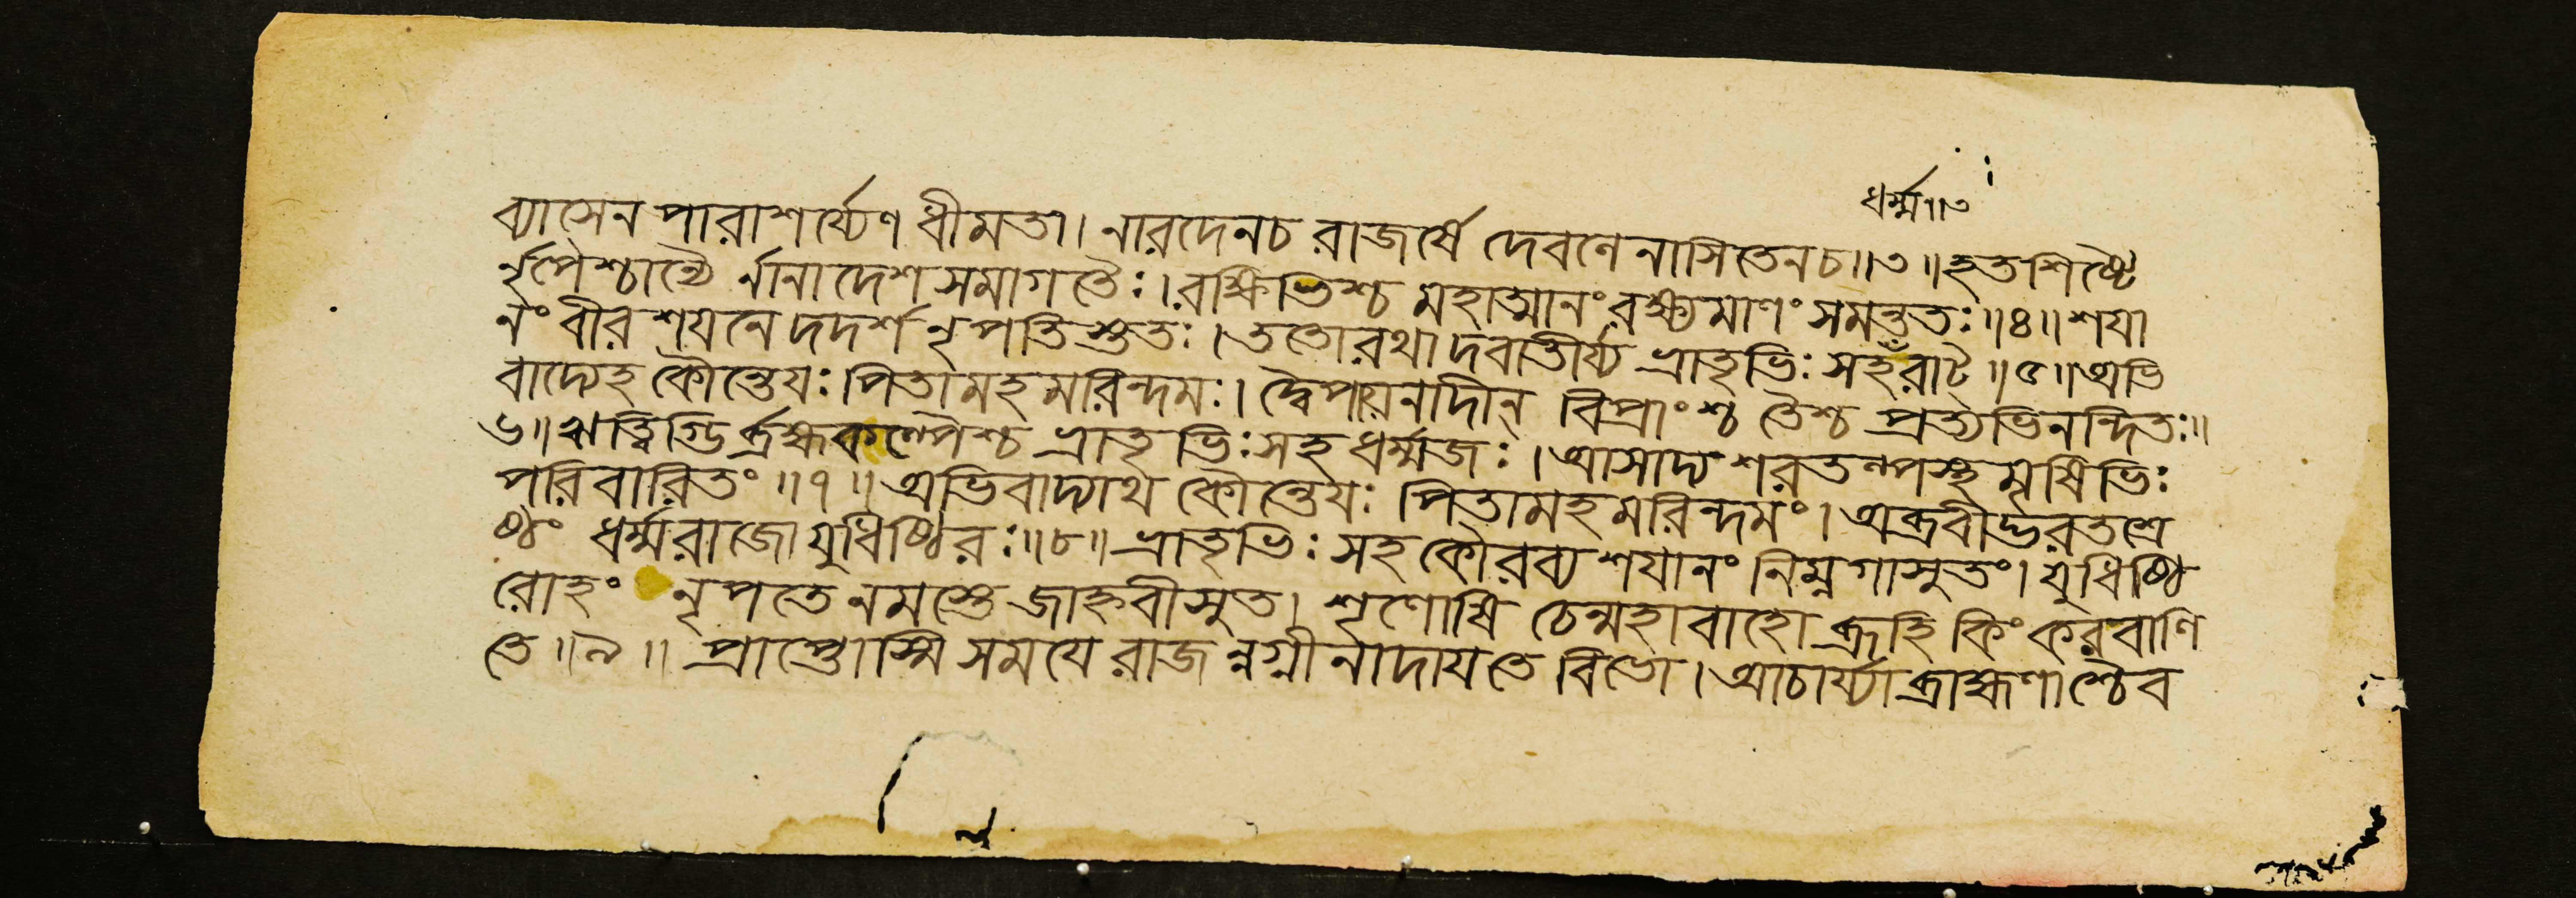 ধর্ম্ম॥৩
ব্যাসেন পারাশর্য্যেণ ধীমতা। নারদেনচ রাজর্ষে দেবলে নাসিতেনচ॥৩॥হতশিষ্টৈ
র্নৃপৈশ্চান্যৈ র্নানাদেশসমাগতৈঃ।রক্ষিভিশ্চ মহাত্মানং রক্ষ্যমাণং সমন্ততঃ॥৪॥শযা
নং বীরশযনে দদর্শ নৃপতিস্ততঃ।ততোরথাদবাতীর্য্য ভ্রাতৃভিঃ সহঁরাট্॥৫॥অভি
বাদ্যেহ কৌন্তেযঃ পিতামহমরিন্দমঃ। দ্বৈপায়নাদীন্ বিপ্রাংশ্চ তৈশ্চ প্রত্যভিনন্দিতঃ॥
৬॥ঋত্বিগ্ভির্ব্রহ্মকল্পৈশ্চ ভ্রাতৃভিঃসহ ধর্ম্মজঃ।আসাদ্য শরতল্পস্থমৃষিভিঃ
পরিবারিতং॥৭॥অভিবাদ্যাথ কৌন্তেযঃ পিতামহমরিন্দমং।অব্রবীর্দ্ভরতশ্রে
ষ্ঠং ধর্ম্মরাজো যুধিষ্ঠিরঃ॥৮॥ভ্রাতৃভিঃ সহকৌরব্য শযানং নিম্নগাসুতং।যুধিষ্ঠি
রোহং নৃপতে নমস্তে জাহ্নবীসুত। শৃণোষি চেন্মহাবাহো ব্রূহি কিংকরবাণি
তে॥৯॥ প্রাপ্তোস্মি সময়ে রাজন্নগ্নীর্নাদাযতে বিভো।আচার্য্যাব্রাহ্মণাশ্চৈব